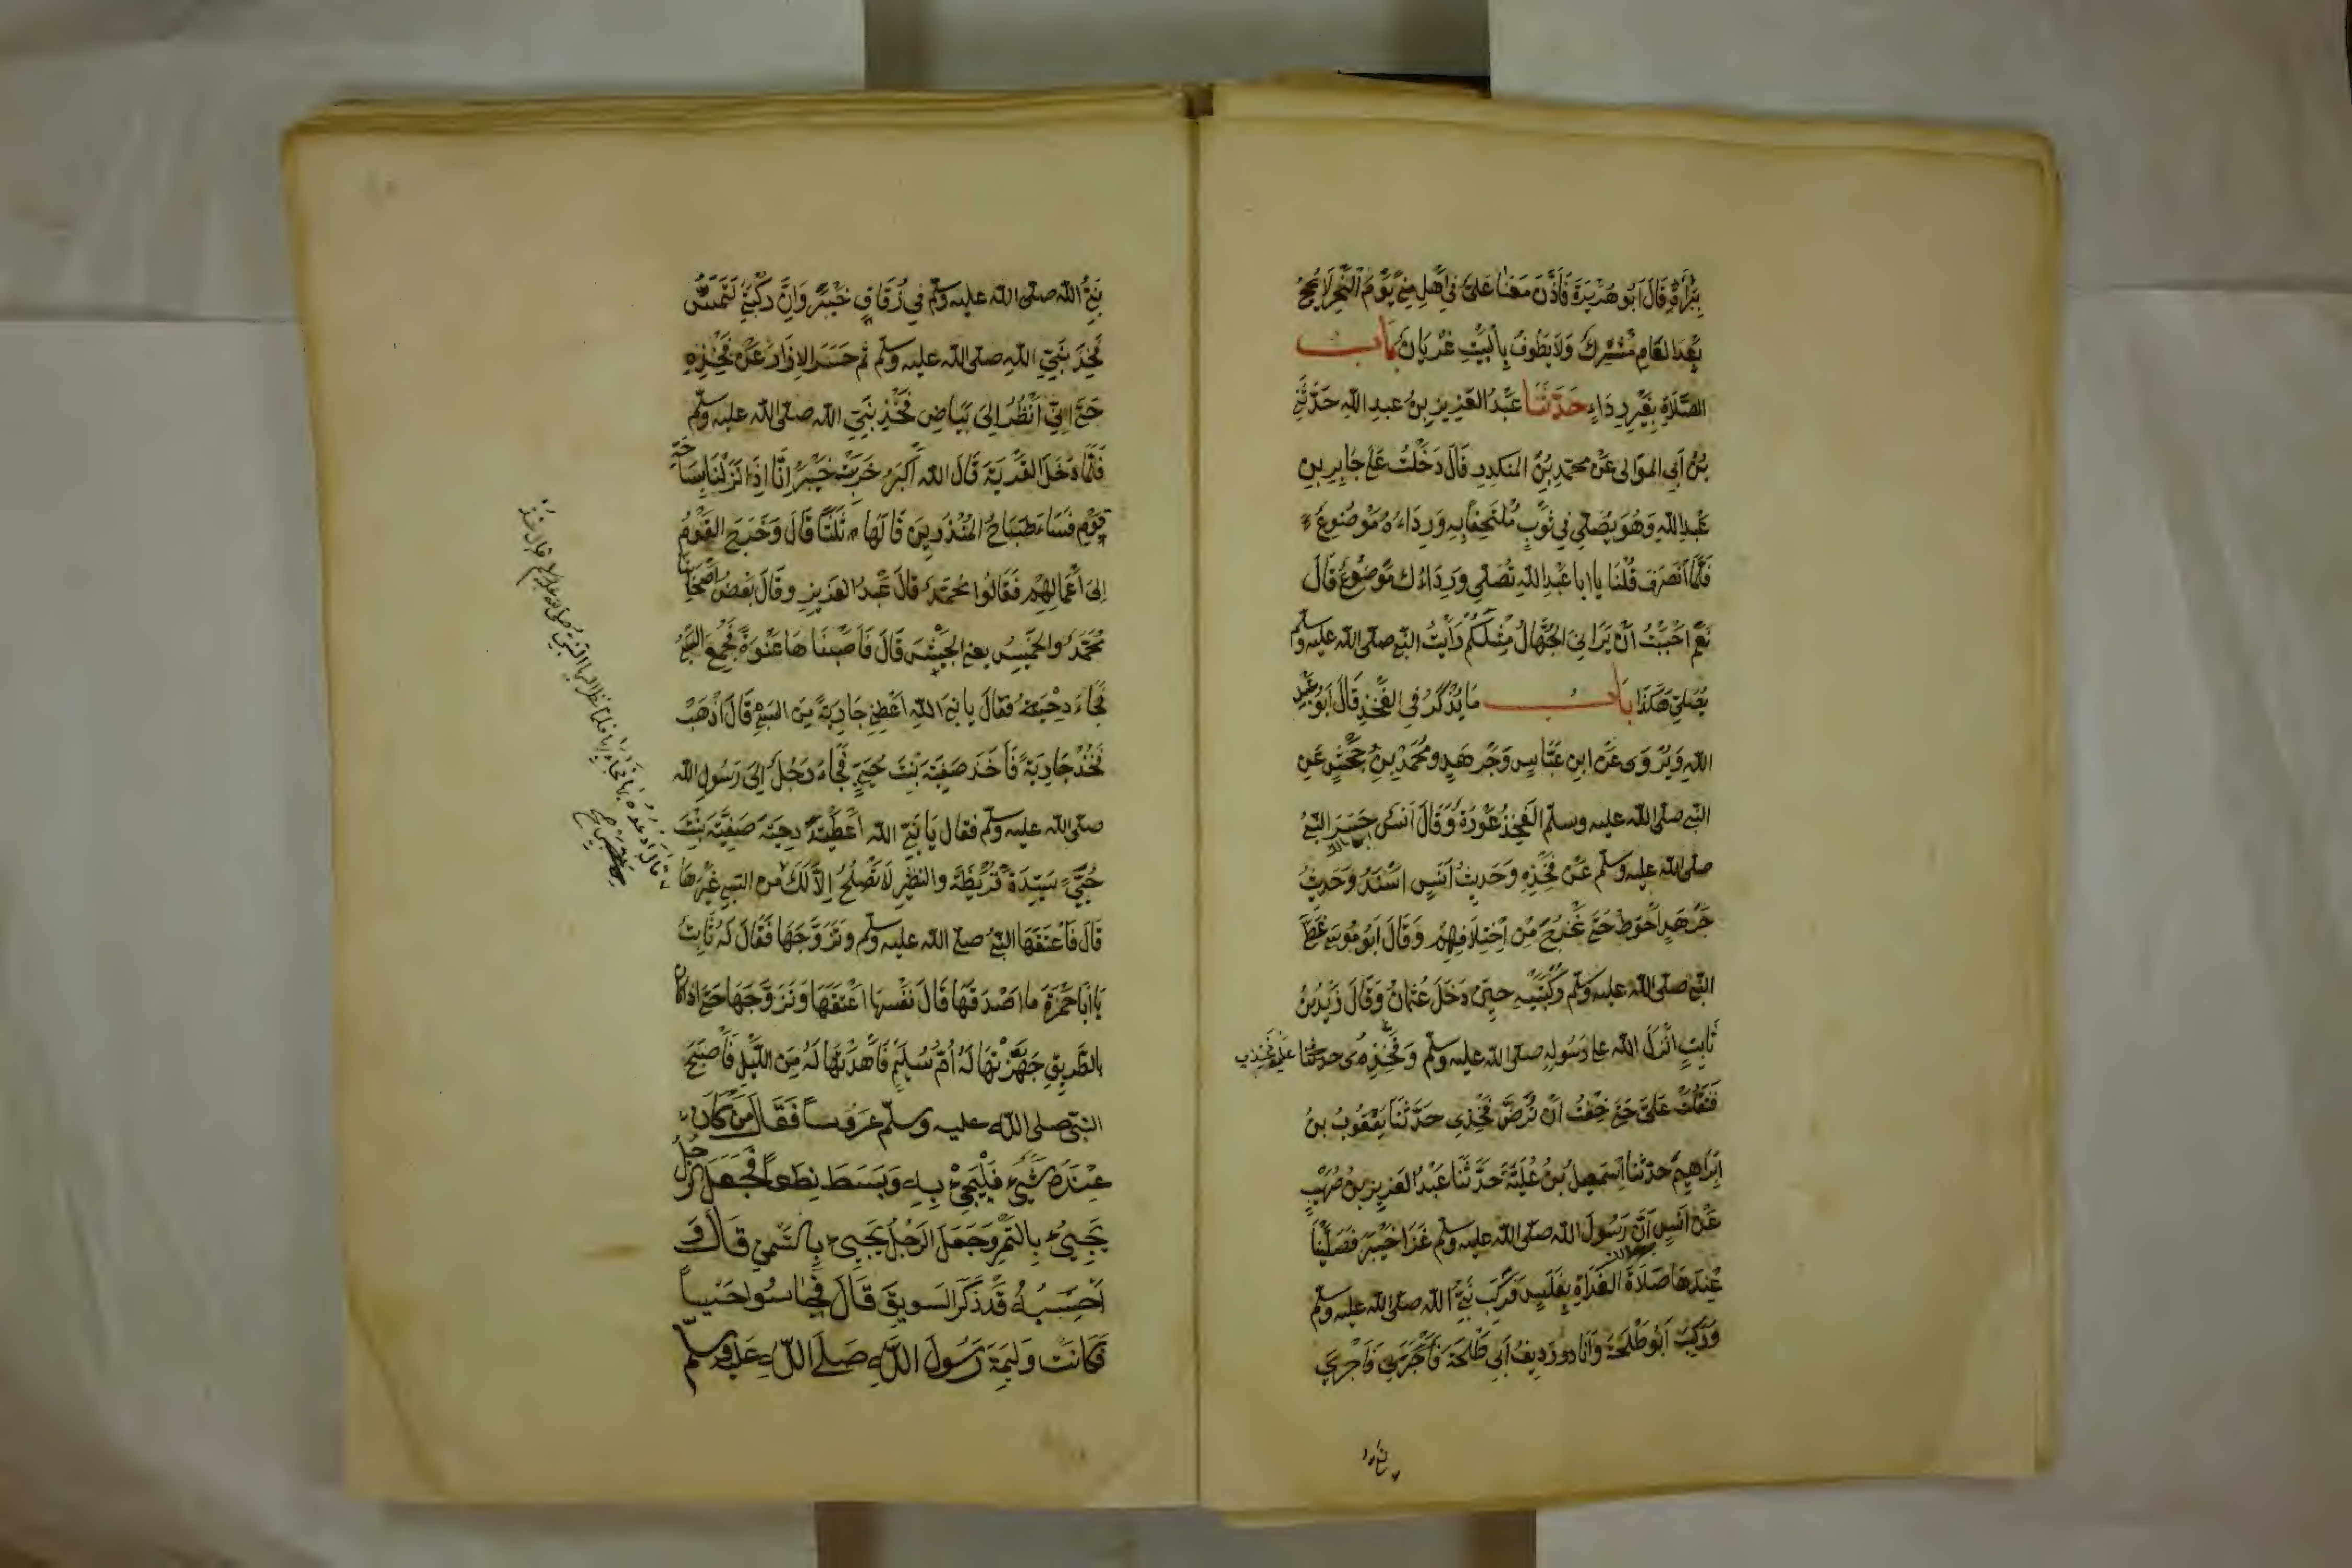 بِبَرَاءَةَ قَالَ اَبُو هُرَيْرَةَ فَاَذَّنَ مَعَنَا عَلِيٌّ فِي اَهْلِ مِنًى يَوْمَ النَّحْرِ لَا يَحُجُّ
بَعْدَ الْعَامِ مُشْرِكٌ وَلَا يَطُوفُ بِالْبَيْتِ عُرْيَانٌ بَابُ
الصَّلَاةِ بِغَيْرِ رِدَاءٍ حَدَّثَنَا عَبْدُ الْعَزِيزِ بْنُ عَبدِ اللّٰهِ حَدَّثَنِي
بْنُ اَبِي الموَالِى عَنْ محمّدِ بْنِ المنكدِرِ قَالَ دَخَلْتُ عَلَى جَابِرِ بنِ
عَبدِ اللّٰهِ وَهُوَ يُصَلِّي فِي ثَوْبٍ مُلْتَحِفًا بِهِ وَرِدَاءُهُ مَوْضُوعٌ
فَلَمَّا اَنْصَرَفَ قُلْنَا يَا ابا عَبْدِ اللّٰهِ تُصَلِّي وَرِدَاءُكَ مَوْضُوعٌ قَالَ
نَعَمْ اَحْبَبْتُ اَنْ يَرَانِيَ الْجُهَّالُ مِثْلُكُمْ رَاَيْتُ النَّبِيَّ صلّى اللّٰه عليه وسلّم
يُصَلِّي هٰكَذَا بَابُ مَا يُذْكَرُ فِي الْفَخِذِ قَالَ اَبُو عَبْدِ
اللّٰهِ وَيُرْوَى عَنْ ابنِ عَبَّاسٍ وَجَرْهَدٍ وَمُحَمَّدِ بْنِ جَحْشٍ عَنِ
النَّبِي صلّى اللّٰه عليه وسلّم الْفَخِذُ عَوْرَةٌ وَقَالَ اَنَسٌ حَسَرَ النَّبِيُّ
صلى اللّٰه عليه وسلّم عَنْ فَخِذِهِ وَحَدِيثُ اَنَسٍ اَسْنَدُ وَحَدِيثُ
جَرْهَدٍ اَحْوَطُ حَتَّى نَخْرُجَ مِنْ اِخْتِلَافِهِمْ وَقَالَ اَبُو مُوسَى غَطَّى
النَّبِيُّ صلّى اللّٰه عليه وسلّم رُكْبَتَيْهِ حِينَ دَخَلَ عُثْمَانُ وَقَالَ زَيْدُ بْنُ
ثَابِتٍ اَنْزَلَ اللّٰهُ عَلَى رَسُولِهِ صلّى اللّٰه عليه وسلّم وَفَخِذُهُ عَلَى فَخِذِي
فَثَقُلَتْ عَلَيَّ حَتَّى خِفْتُ اَنْ تُرَضَّ فَخِذِي حَدَّثَنَا يَعْقُوبُ بْنُ
اِبْرَاهِيمَ حَدَّثَنَا اِسْمٰعِيلُ بْنُ عُلَيَّةَ حَدَّثَنَا عَبْدُ الْعَزِيزِ بْنُ صُهَيْبٍ
عَنْ اَنَسٍ اَنَّ رَسُولَ اللّٰه صلّى اللّٰه عليه وسلّم غَزَا خَيْبَرَ فَصَلَّيْنَا
عِنْدَهَا صَلَاةَ الْغَدَاةِ بِغَلَسٍ فَرَكِبَ نَبِيُّ اللّٰه صلّى اللّٰه عليه وسلّم
وَرَكِبَ اَبُو طَلْحَةَ وَاَنَا رَدِيفُ اَبِي طَلْحَةَ فَاَجْرَى
نَبِيُّ اللّٰه صلّى اللّٰه عليه وسلّم فِي زُقَاقِ خَيْبَرَ وَاِنَّ رُكْبَتِي لَتَمَسُّ
فَخِذَ نَبِيِّ اللّٰهِ صلّى اللّٰه عليه وسلّم ثُم حَسَرَ الاِزَارَ عَنْ فَخِذِهِ
حَتَّى اِنِّي اَنْظُرُ اِلَى بَيَاضِ فَخِذِ نَبِيِّ اللّٰه صلّى اللّٰه عليه وسلّم
فَلَمَّا دَخَلَ الْقَرْيَةَ قَالَ اللّٰه اَكْبَرُ خَرِبَتْ خَيْبَرُ اِنَّا اِذَا نَزَلْنَا بِسَاحَةِ
قَوْمٍ فَسَاءَ صَبَاحُ الْمُنْذَرِينَ قَالَهَا ثَلَثًا قَالَ وَخَرَجَ الْقَوْمُ
اِلَى اَعْمَالِهِمْ فَقَالُوا مُحَمَّدٌ قَالَ عَبْدُ الْعَزِيزِ وَقَالَ بَعْضُ اَصْحَابِنَا
مُحَمَّدٌ وَالْخَمِيسُ يعنِي الْجَيْشَ قَالَ فَاَصَبْنَاهَا عَنْوَةً فَجُمِعَ السَّبْيُ
فَجَاءَ دِحْيَةُ فَقَالَ يَا نَبِيَّ اللّٰهِ اَعْطِنِي جَارِيَةً مِنَ السَّبْيِ قَالَ اذْهَبْ
فَخُذْ جَارِيَةً فَاَخَذَ صَفِيَّةَ بِنْتَ حُيَيٍّ فَجَاءَ رَجُلٌ اِلَى رَسُولِ اللّٰه
صلّى اللّٰه عليه وسلّم فقال يَا نَبِيَّ اللّٰه اَعْطَيْتَ دِحْيَةَ صَفِيَّةَ بِنْتَ
حُيَيٍّ سَيِّدَةَ قُرَيْظَةَ وَالنَّضِيرِ لَا تَصْلُحُ اِلَّا لَكَ من السَّبْيِ غَيْرَهَا
قَالَ فَاَعْتَقَهَا النَّبِيُّ صلى اللّٰه عليه وسلّم وَتَزَوَّجَهَا فَقَالَ لَهُ ثَابِتٌ
يَا اَبَا حَمْزَةَ مَا اَصْدَقَهَا قَالَ نَفْسَهَا اَعْتَقَهَا وَتَزَوَّجَهَا حَتَّى اِذَا كَانَ
بِالطَّرِيقِ جَهَّزَتْهَا لَهُ اُمُّ سُلَيْمٍ فَاَهْدَتْهَا لَهُ مِنَ اللَّيْلِ فَاَصْبَحَ
النبّي صلى اللّٰه عليه وسلّم عَرُوسًا فَقَالَ مَنْ كَانَ
عِنْدَهُ شَيْءٌ فَلْيَجِئْ بِهِ وَبَسَطَ نِطَعًا فَجَعَلَ الرَّجُلُ
يَجِيءُ بِالتَّمْرِ وَجَعَلَ الرَّجُلُ يَجِيءُ بِالسَّمْنِ قَالَ وَ
اَحْسِبُهُ قَدْ ذَكَرَ السَّوِيقَ قَالَ فَحَاسُوا حَيْسًا
فَكَانَتْ وَلِيمَةَ رَسُولِ اللّٰهِ صَلَّى اللّٰه عَلَيْهِ وسلّم
قال ادعوه بها فجاء بها فلما نظر اليها النبي صلى الله عليه وسلم قال خذ